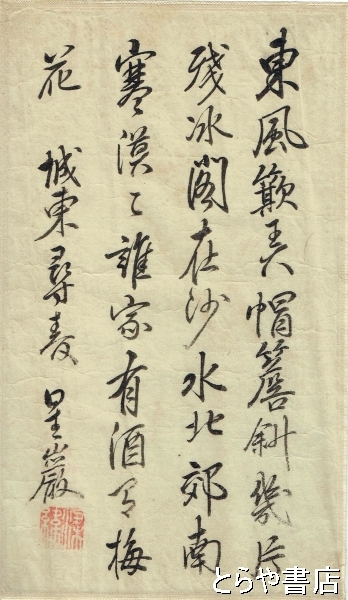 東風弄帽簷斜幾片
残冰閣在沙水北郊南
寒漠〻誰家有酒有梅
花 城東尋春 星巖
とらや書店